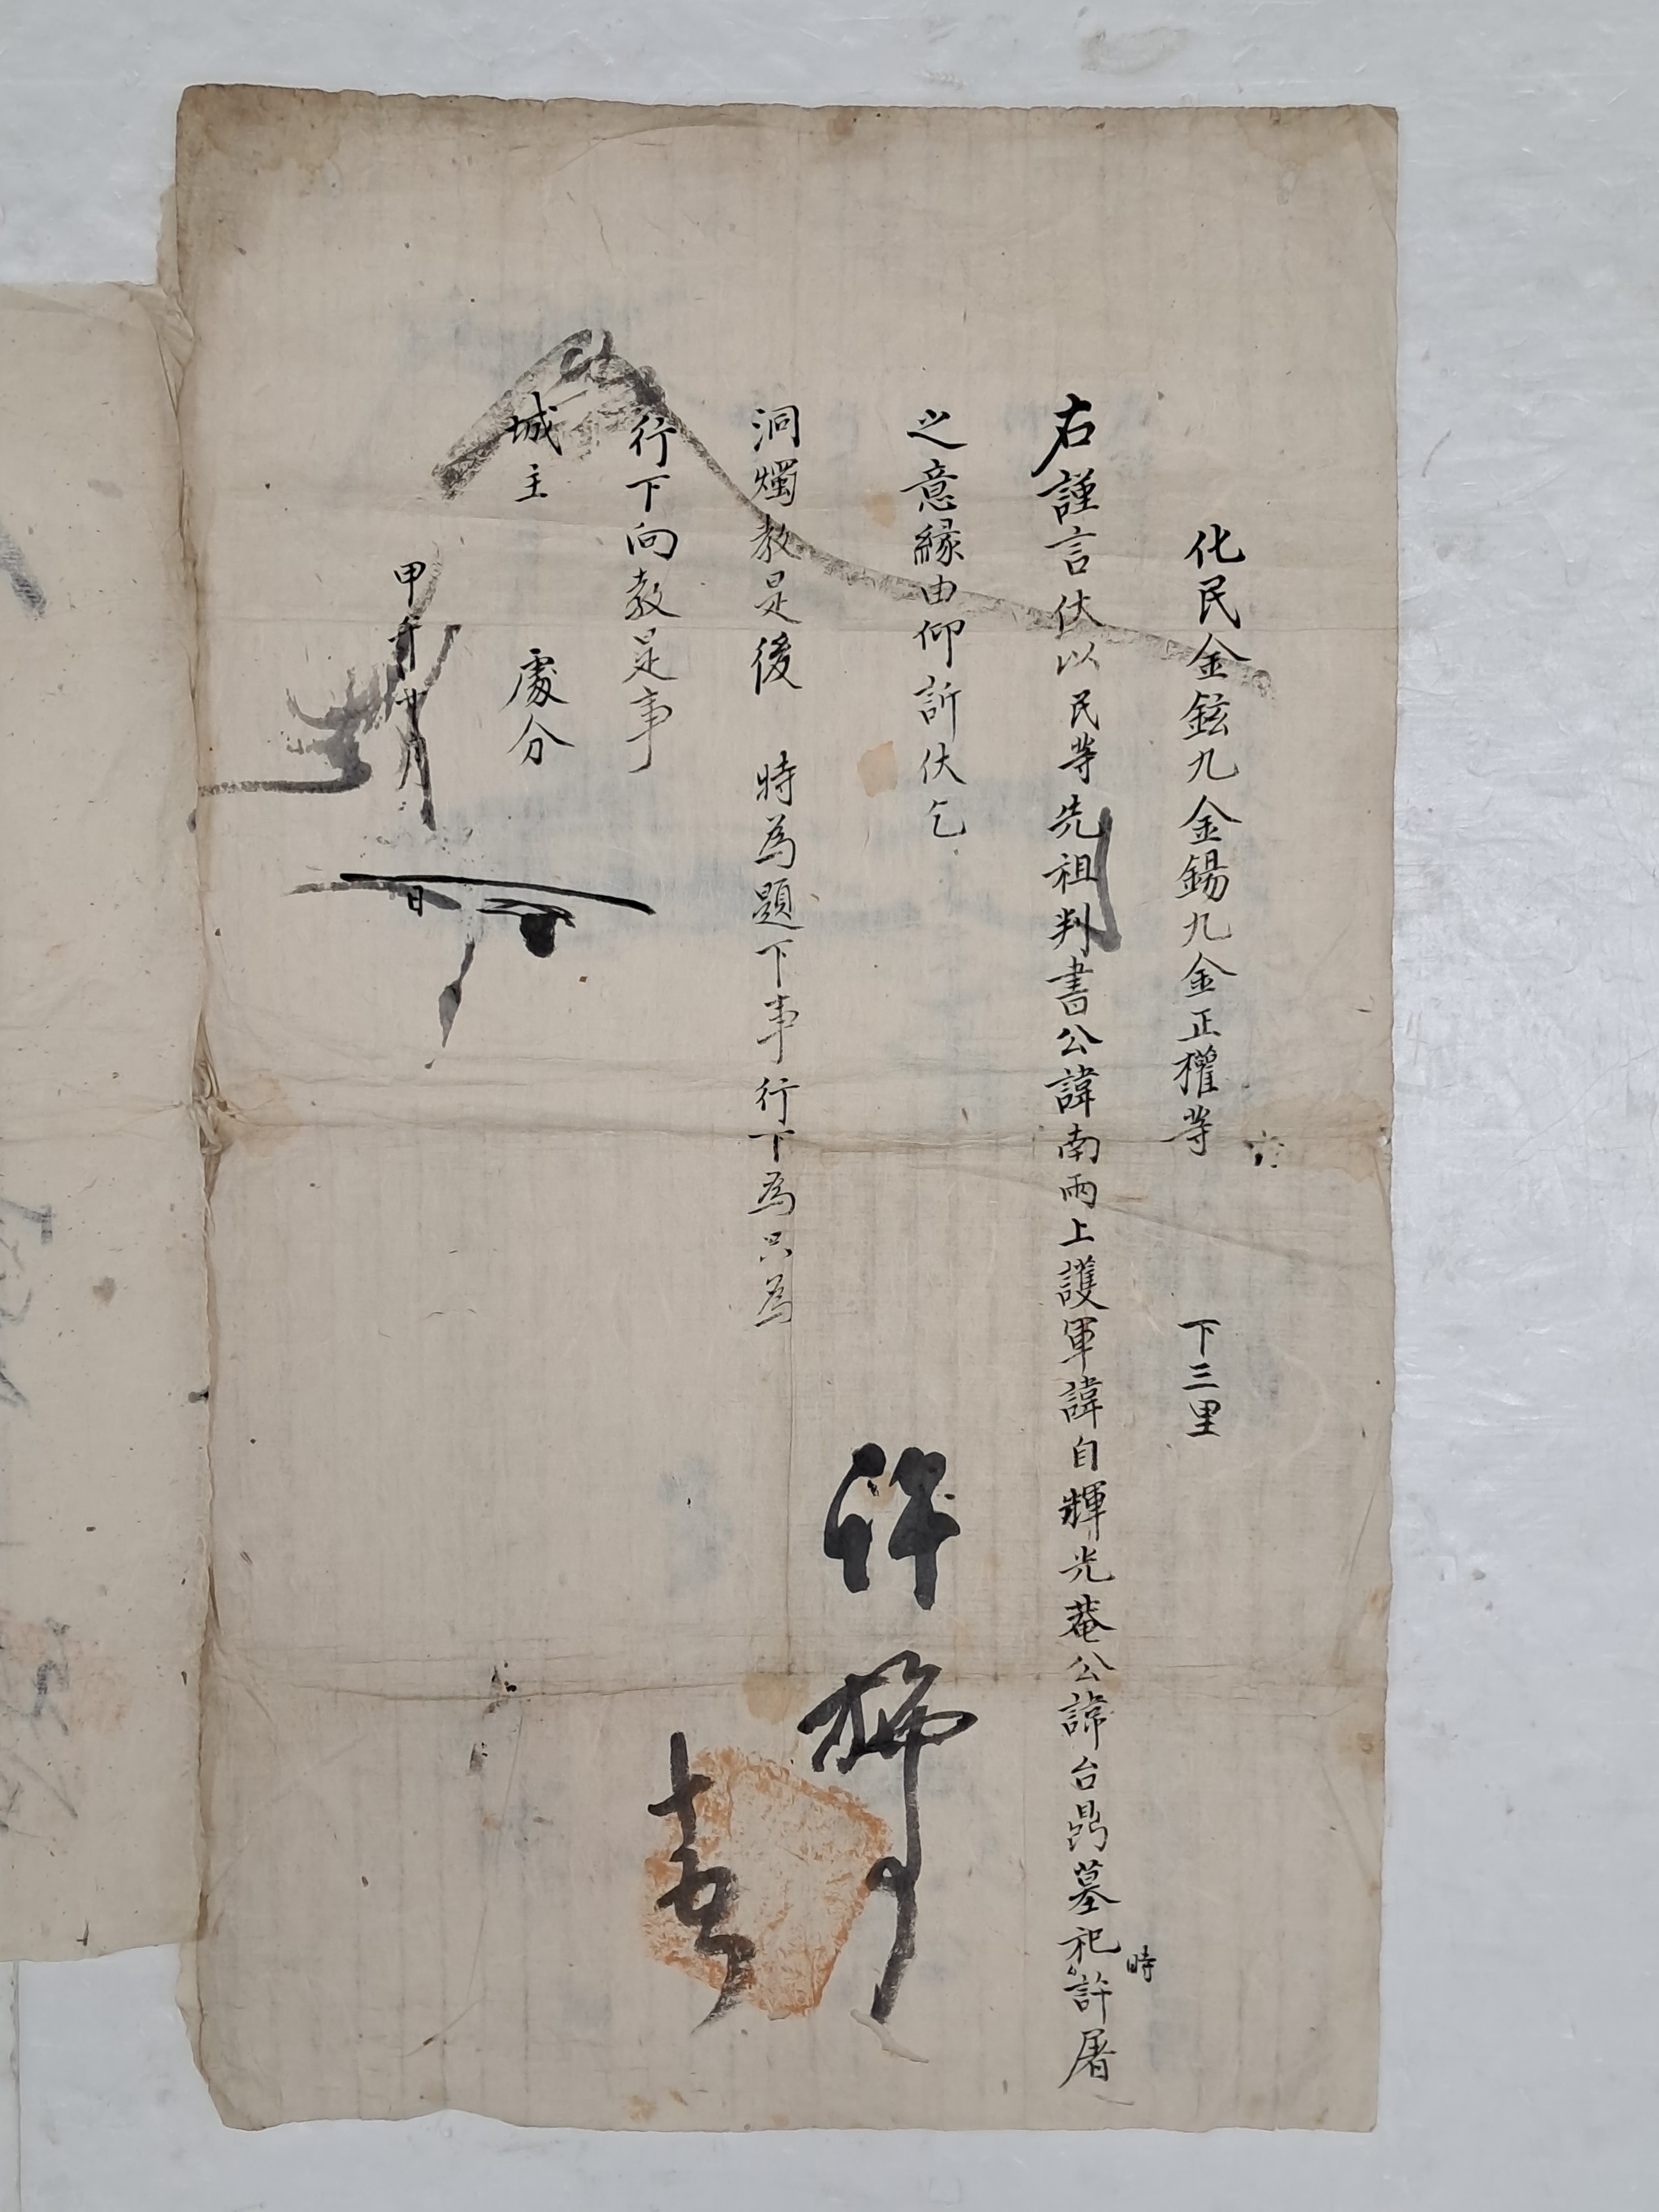 化民金鉉九金錫九金正權等 下三里
右謹言伏以民等先祖判書公諱南雨上護軍諱自輝光菴公諱台鼎墓祀時許屠
之意緣由仰訴伏乞
洞燭敎是後 時為題下事行下為只為
行下向敎是事
城主 處分
甲午十月 日
許施